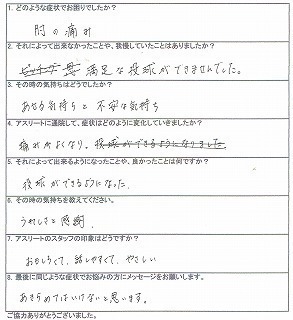 1. どのような症状でお困りでしたか？
肘の痛み
2. それによって出来なかったことや、我慢していたことはありましたか？
満足な投球ができませんでした。
3. その時の気持ちはどうでしたか？
あせる気持ちと 不安な気持ち
4. アスリートに通院して、症状はどのように変化していきましたか？
痛みがよくなり、投球ができるようになりました
5. それによって出来るようになったことや、良かったことは何ですか？
投球ができるようになった。
6. その時の気持ちを教えてください。
うれしさと感謝、
7. アスリートのスタッフの印象はどうですか？
おもしろくて、話しやすくて、やさしい
8. 最後に同じような症状でお悩みの方にメッセージをお願いします。
あきらめてはいけないと思います。
ご協力ありがとうございました。